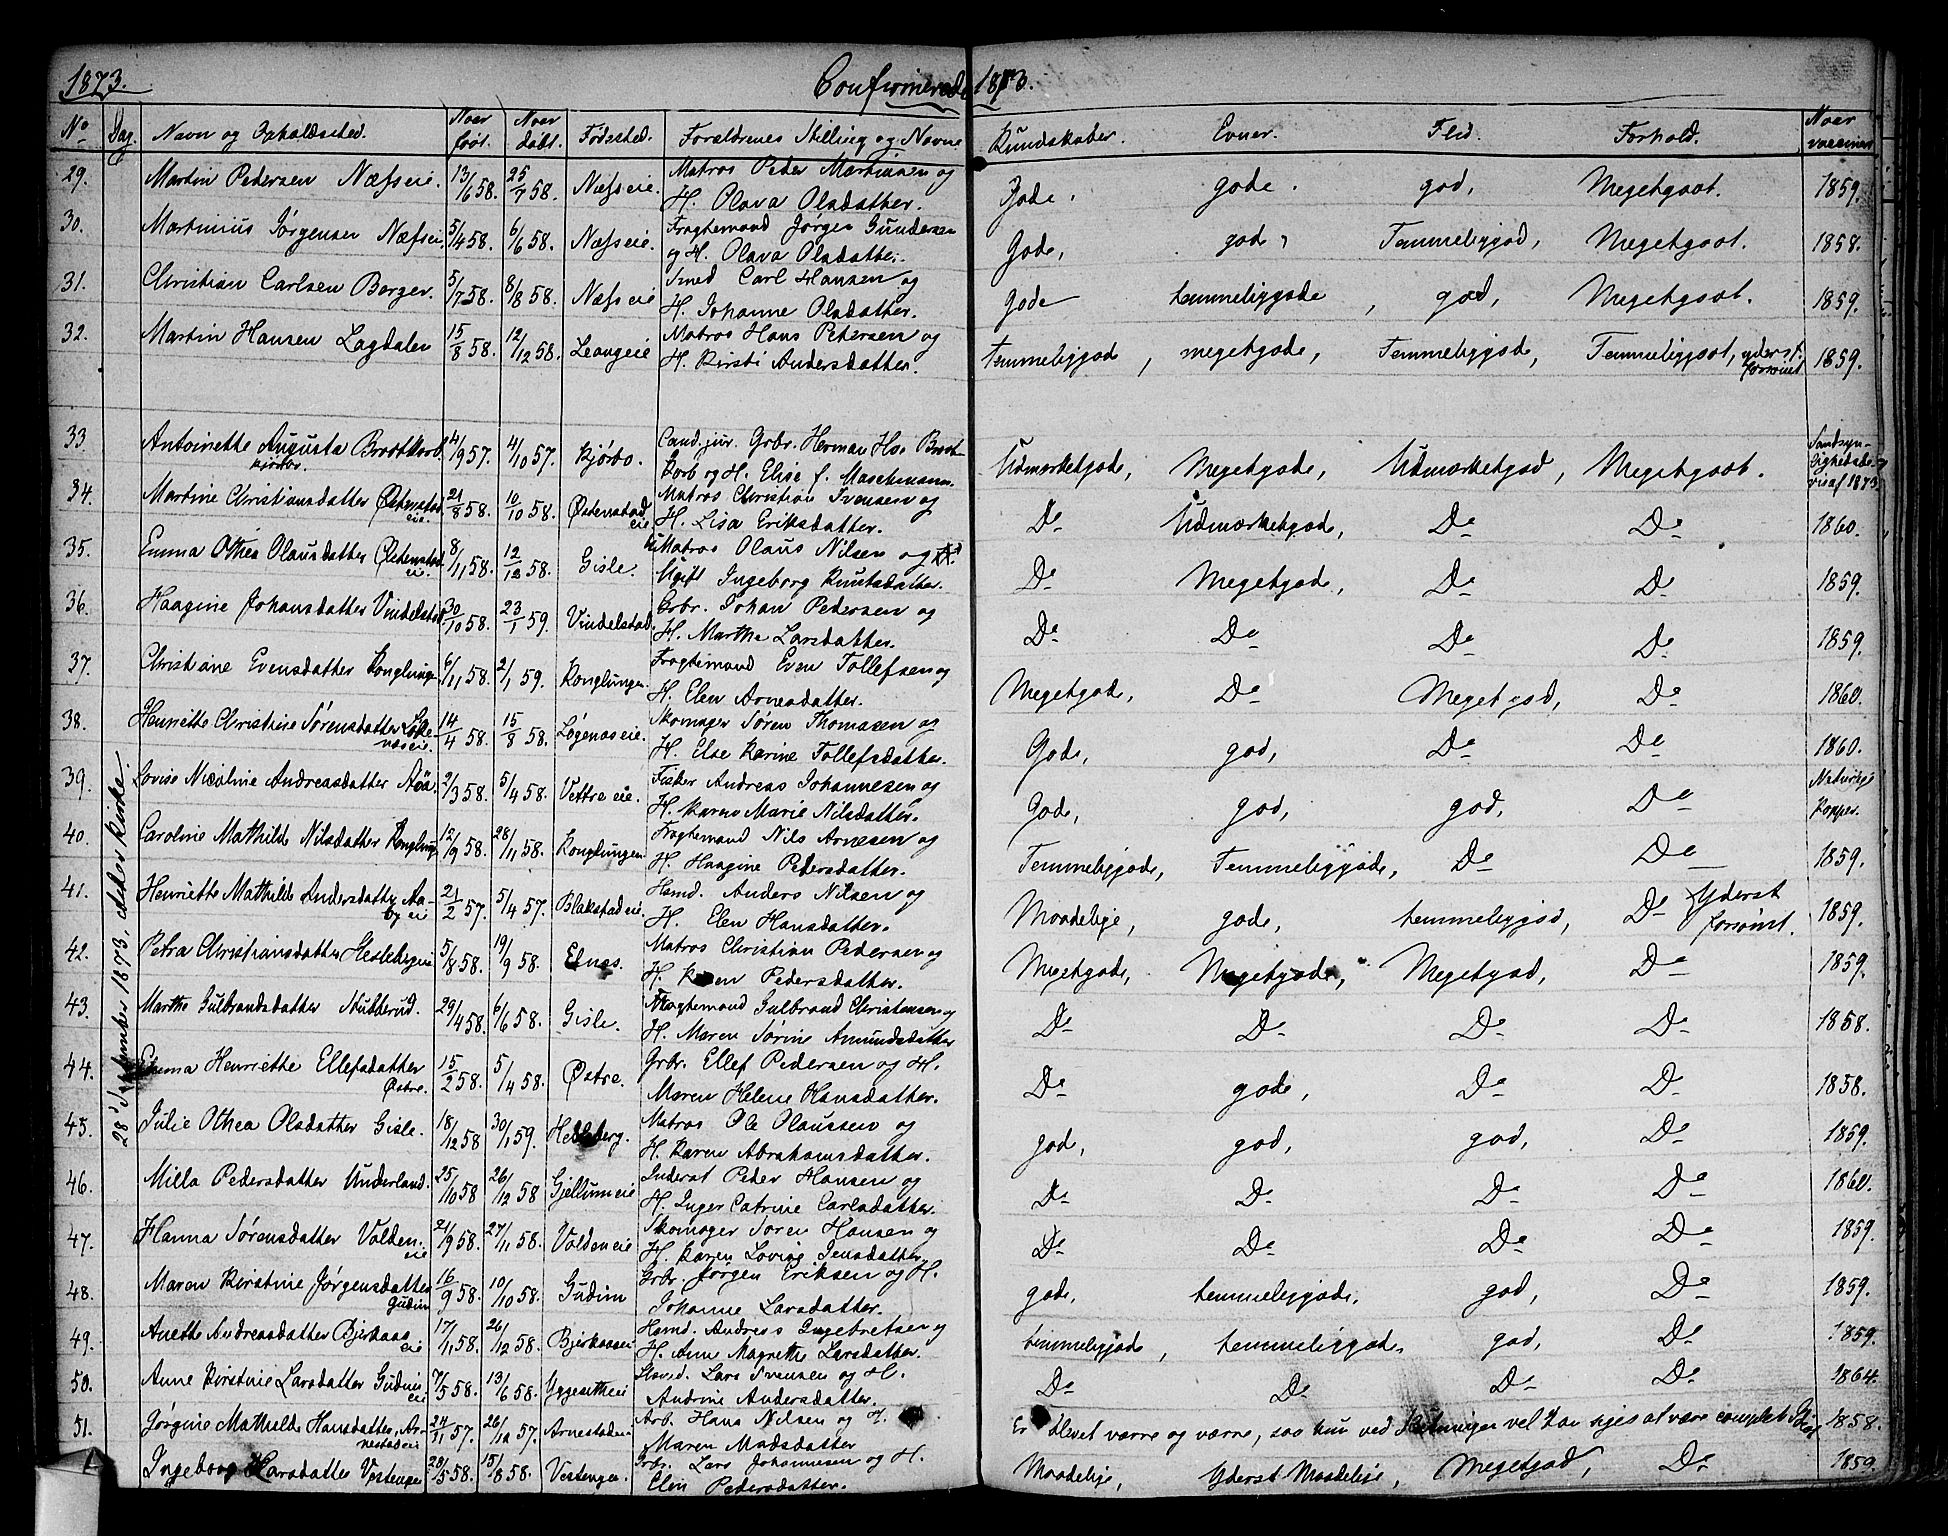 1873. Confirmerede 1873.
No Dag. Navn og Opholdssted. Naar født. Naar døbt. Fødested. Forældrenes Stilling og Navne Kundskaber. Evner. Flid. Forhold. Naar vaccineret
29. Martin Pedersen Næfseie. 13/6 58. 25/7 58. Næfseie. Matros Peder Martinsen og Gode. gode. god, Megetgodt. 1859.
H. Olava Olsdatter.
30. Martinius Jørgensen Næfseie. 5/4 58. 6/6 58. Næfseie. Fragtemand Jørgen Gundersen Gode, gode, Temmeliggod, Megetgodt. 1858.
og H. Olava Olsdatter.
31. Christian Carlsen Borger. 5/7 58. 8/8 58. Næfseie Smed Carl Hansen og Gode temmeliggode, god, Megetgodt. 1859.
H. Johanne Olsdatter.
32. Martin Hansen Lagdalen 15/8 58. 12/12 58. Leangeie Matros Hans Petersen og Temmeliggode, megetgode, Temmeliggod, Temmeliggodt, yderst 1859.
H. Kirsti Andersdatter. forsømt
33 Antoinette Augusta Brodtkorb. 4/9 57. 4/10 57. Kjørbo. Cand. jur. Grbr. Herman Hs. Brodt- Udmærketgode, Megetgode, Udmærketgod, Megetgodt. Sandsyn-
Kjørbo. korb og H. Elise f. Maschmann. lighedsbe-
viis af 1873
34. Martine Christiansdatter Østenstad 21/8 58. 10/10 58. Østenstad Matros Christian Svensen og Do Udmærketgode, Do Do 1860.
eie. eie H. Lisa Eriksdatter.
35. Emma Othea Olausdatter Østenstad 8/11 58. 12/12 58. Gisle. Matros Olaus Nilsen og Do Megetgode, Do Do 1859.
ei. Ugift Ingeborg Knutsdatter.
36. Haagine Johansdatter Vindelstad 30/10 58. 23/1 59. Vindelstad Grbr. Johan Pedersen og Do Do Do Do 1859.
H. Marthe Larsdatter.
37. Christiane Evensdatter Konglungen 6/11 58. 2/1 59. Konglungen Fragtemand Even Tollefsen og Megetgode, Do Meget god, Do 1860.
H. Elen Arnesdatter.
38. Henriette Christine Sørensdatter Løge 14/4 58. 15/8 58. Løgenæseie. Skomager Søren Thomasen og Gode, god, Do Do 1860.
næseie. H. Else Karine Tollefsdatter.
39. Lovise Nicoline Andreasdatter 2/3 58. 5/4 58. Vettre eie. Fisker Andreas Johannesen og Gode, god, god, Do Naturlige
H. Karen Marie Nilsdatter. Kopper.
40. Caroline Mathilde Nilsdatter Konglung. 12/9 58. 28/11 58. Konglungen Fragtemand Nils Arnesen og Temmeliggode, Temmeliggode, Do Do 1859.
H. Haagine Pedersdatter.
41. Henriette Mathilde Andersdatter Aa- 21/2 57. 5/4 57. Blakstadeie. Husmd. Anders Nilsen og Maadelige, gode, temmeliggod, Do Yderst 1859.
by eie H. Elen Hansdatter. forsømt.
42. Petra Christiansdatter Heslebergeie 5/8 58. 19/9 58. Elnæs. Matros Christian Pedersen og Megetgode, Megetgode, Megetgod, Do 1859.
H. Karen Pedersdatter.
43. Marthe Gulbrandsdatter Nubberud. 29/4 58. 6/6 58. Gisle. Fragtemand Gulbrand Christensen og Do Do Do Do 1858.
H. Maren Sørine Amundsdatter
44. Emma Henriette Ellefsdatter 15/2 58. 5/4 58. Østre. Grbr. Ellef Pedersen og H. Do gode, Do Do 1858.
Østre. Maren Helene Hansdatter.
45. Julie Othea Olsdatter Gisle. 18/12 58 30/1 59. Hesleberg. Matros Ole Olaussen og god, god, god, Do 1859.
H. Karen Abrahamsdatter.
28de September 1873, Asker Kirke.
46. Milla Pedersdatter Underland. 25/10 58 26/12 58 Gjellumeie Inderst Peder Hansen og Do Do Do Do 1860.
H. Inger Catrine Carlsdatter.
47. Hanna Sørensdatter Volden. 21/9 58. 27/11 58. Voldeneie Skomager Søren Hansen og Do Do Do Do 1859.
eie H. Karen Lovise Jensdatter
48. Maren Kirstine Jørgensdatter 16/9 58. 10/10 58. Gudim Grbr. Jørgen Eriksen og H. gode, temmeliggode, god, Do 1859.
Gudim Johanne Larsdatter.
49. Anette Andreasdatter Bjerkaas 17/1 58. 26/12 58. Bjerkaaseie Husmd. Andreas Ingebretsen og temmeliggode, temmeliggode, god, Do 1859.
eie H. Anne Magrethe Larsdatter.
50. Anne Kirstine Larsdatter Gudim 7/5 58. 13/6 58. Yggesetheie Lars Svensen og H. Do Do Do Do 1864.
eie Andrine Andersdatter.
51. Jørgine Mathilde Hansdatter, Ar- 24/11 57. 26/12 57. Arnestadeie Arb. Hans Nilsen og H. Er blevet værre og værre, saa hun ved Slutningen vel kan siges at være complet 1858.
nestadeie Maren Madsdatter
Ingeborg Larsdatter Vestengen 28/5 58. 15/8 58. Vestengen. Grbr. Lars Johannesen og H. Maadelige, Yderst Maadelige, Megetgod, Do 1859.
Elen Pedersdatter.